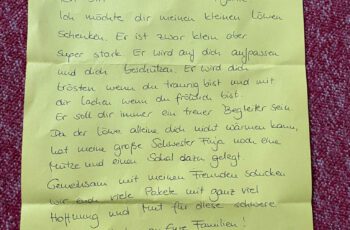 Ich möchte dir meinen kleinen Löwen
Schenken. Er ist zwar klein aber
super stark. Er wird auf dich aufpassen
und dich beschützen. Er wird dich
trösten wenn du traurig bist und mit
dir lachen wenn du fröhlich bist.
Er soll dir immer ein treuer Begleiter sein.
Da der Löwe alleine dich nicht wärmen kann,
hat meine große Schwester Finja noch eine
Mütze und einen Schal dazu gelegt.
Gemeinsam mit meinen Freunden schicken
wir euch viele Pakete mit ganz viel
Hoffnung und Mut für diese schwere
Familien!